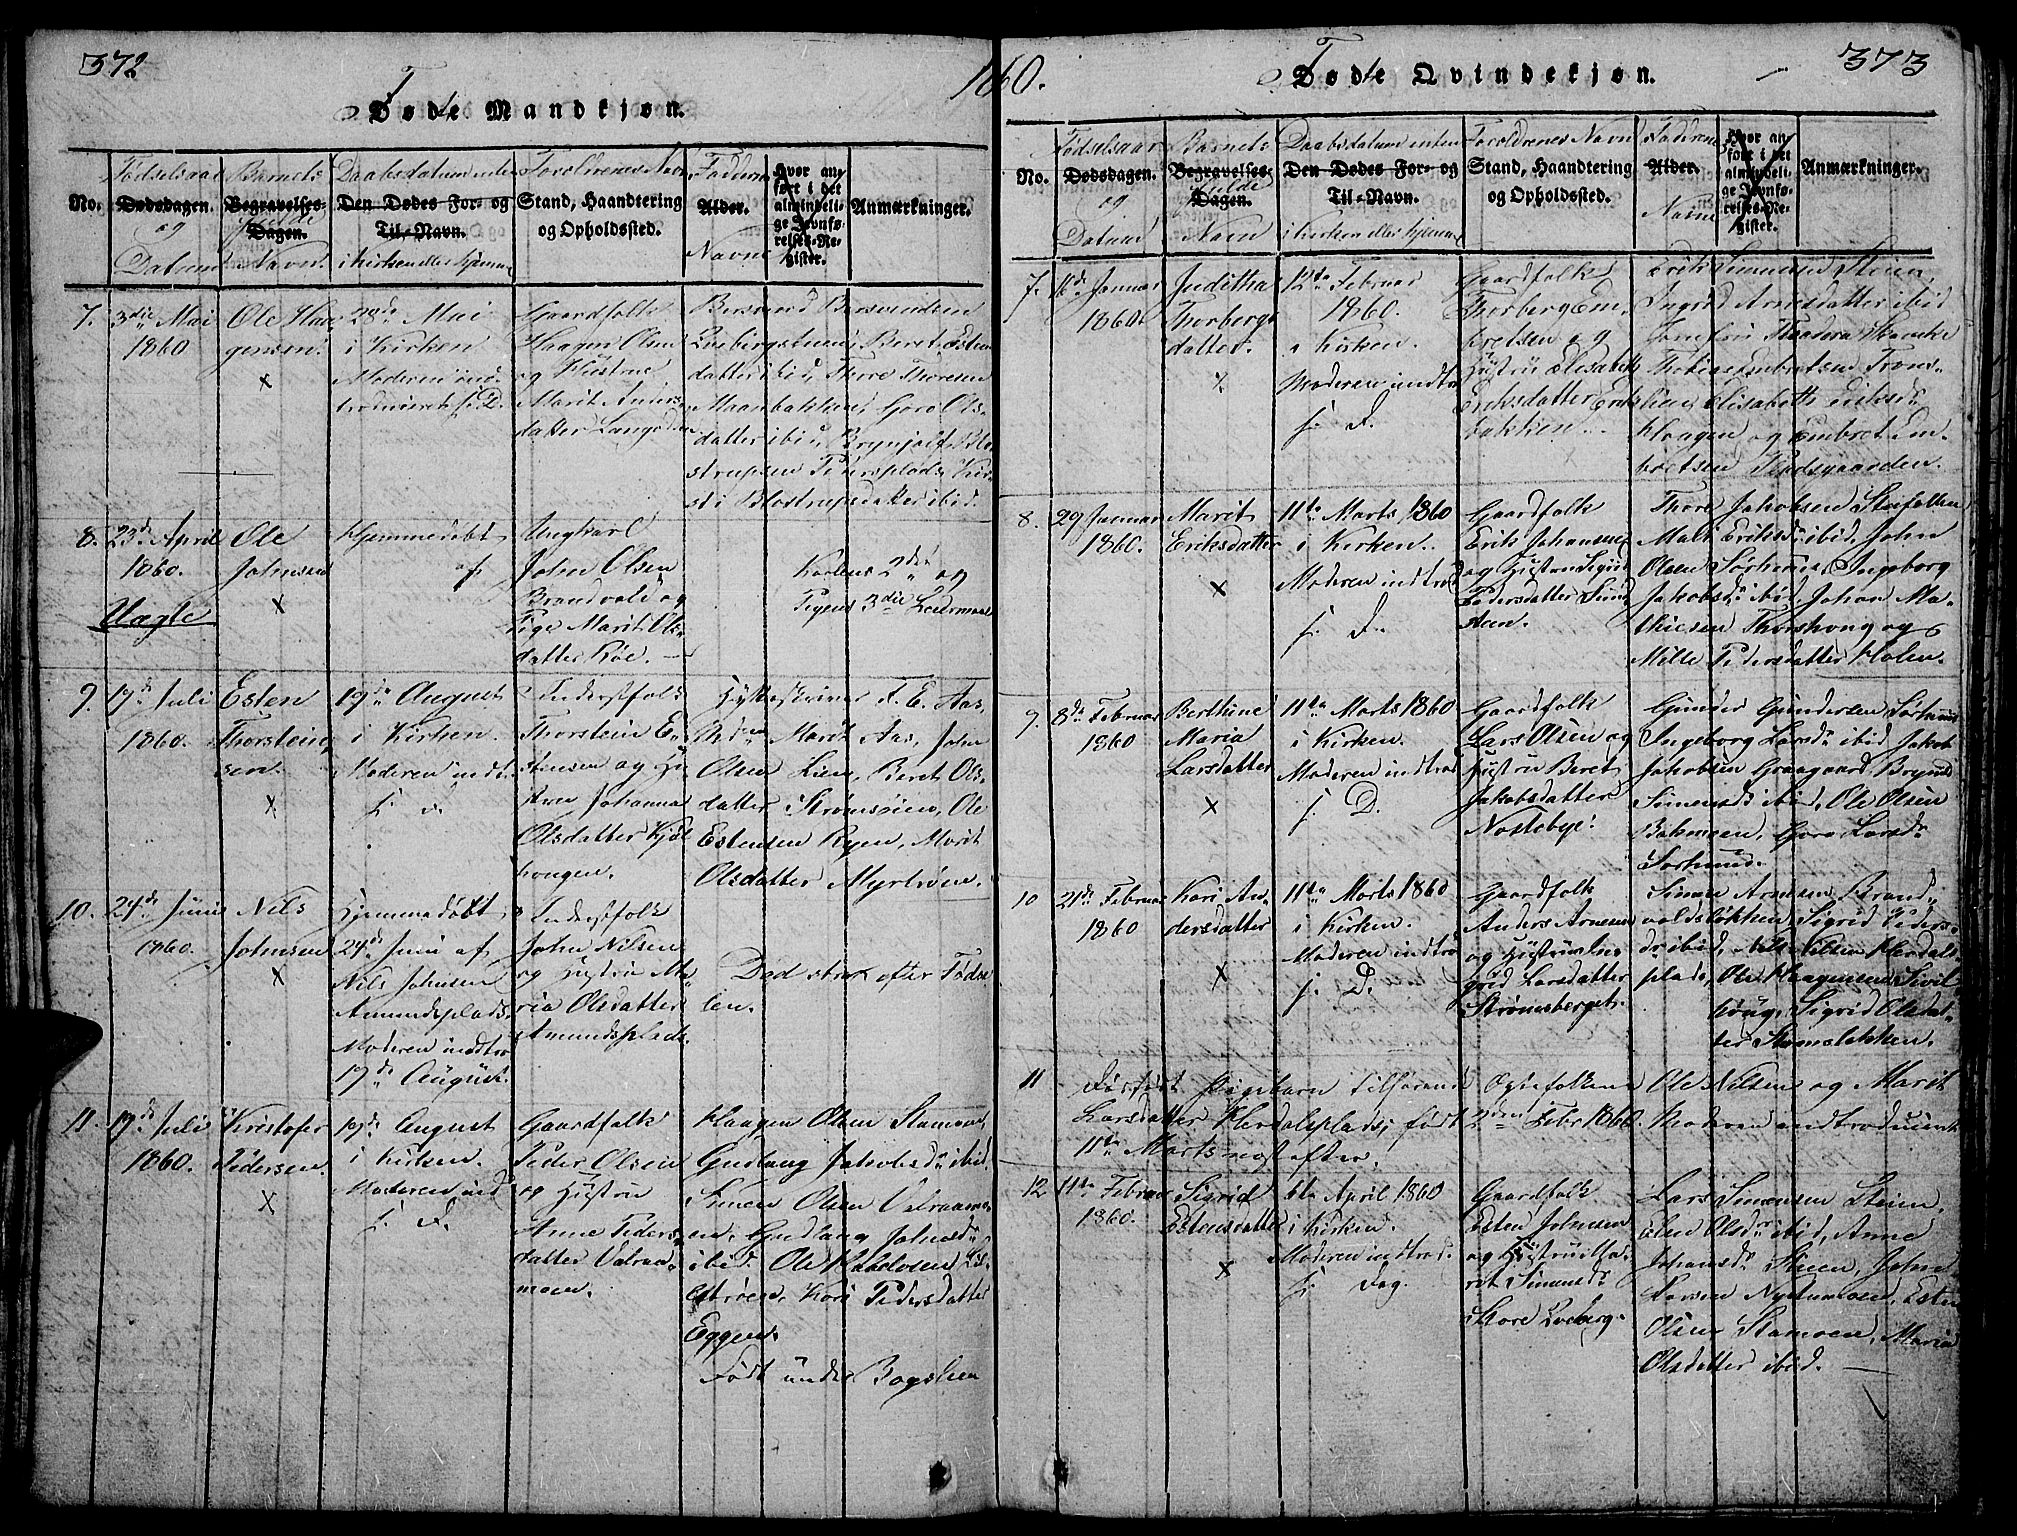 372
1860.
Døde Mandkjøn.
No.
Fødselsaar
Dødsdagen.
og
Datum
Barnets
Begravelses-
fulde
Dagen.
Navn.
Daabsdatum enten
Den Dødes For- og
Til-Navn.
i Kirken eller hjemme
Forældrenes Navn
Stand, Haandtering
og Opholdssted.
Faddernes
Alder.
Navne
Hvor an-
ført i det
almindeli-
ge Jevnfø-
relses-Re-
gister.
Anmærkninger.
7.
3die Mai
1860
Ole Haa-
gensen.
28de Mai
i Kirken
Moderen ind-
troduceret s. D.
Gaardfolk
Haagen Olsen
og Hustrue
Marit Anders-
datter Langøden
Bersvend Bersvendsen
Beret Esten-
datter ibid, Thore Thoresen
Maanbakken, Goro Ols-
datter ibid, Brynjolf Blo-
strupsen Pedersplads, Kir-
sti Blostrupsdatter ibid.
8.
23de April
1860.
Uægte
Ole
Johnsen
Hjemmedøbt
af
Ungkarl
John Olsen
Brandvold og
Pige Marit Ols-
datter Røe.
Karlens 2det og
Pigens 3die Leiermaal
9.
17de Juli
1860.
Esten
Thorstein-
sen.
19de August
i Kirken.
Moderen indt.
s. d.
Inderstfolk
Thorstein E-
stensen og Hu-
strue Johanna
Olsdatter Kjøl-
hougen.
F. E. Aas,
Marit Aas, John
Olsen Lien, Beret Ols-
datter Strømsøien, Ole
Estensen Ryen, Marit
Olsdatter Myrtrøen.
10.
24de Juni
1860.
Nils
Johnsen
Hjemmedøbt
24de Juni af
Nils Johnsen
Amundsplads.
Moderen indtro
19de August.
Inderstfolk
John Nilsen
og Hustru Ma-
ria Olsdatter
Amundsplads.
Død strax efterFøds-
len.
11.
17de Juli
1860.
Kristofer
Pedersen.
19de August
i Kirken.
Moderen ind
s. d.
Gaardfolk
Peder Olsen
og Hustru
Anne Peders-
datter Valraa-
moen.
Haagen Olsen Stamoen,
Gudlaug Jakobsdr ibid,
Simen Olsen Valraamo-
en, Gudlaug Johnsdr
ibid. Ole Halvorsen
Kari Pedersdatter
Eggen.
Født under Bogslien
373
Døde Qvindekjøn.
No.
Fødselsaar
Dødsdagen.
og
Datum
Barnets
Begravelses-
fulde
Dagen.
Navn
Daabsdatum enten
Den Dødes For- og
Til-Navn.
i Kirken eller hjemme
Forældrenes Navn
Stand, Haandtering
og Opholdssted.
Faddernes
Alder.
Navne
Hvor an-
ført i det
almindeli-
ge Jevnfø-
relses-Re-
gister.
Anmærkninger.
7.
Januar
1860.
Juditha
Thorbergs-
datter.
12te Februar
1860.
i Kirken.
Moderen indtro
s. D.
Gaardfolk
Thorberg Em-
bretsen og
Hustru Elisabeth
Eriksdatter Eriks-
bakken.
Erik Simensen Steien,
Ingrid Arnesdatter ibid
Jomfru Skancke
Tobias Embretsen Trons-
lien, Elisabeth Eriksdr
Haagen og Embret Em-
bretsen
8.
29 Januar
1860.
Marit
Eriksdatter
11te Marts 1860
i Kirken.
Moderen indtrod
s. D.
Gaardfolk
Erik Johansen
og Hustru Sigrid
Pedersdatter
Thore Jakobsen
Malt Eriksdr ibid, John
Olsen Sorhuus, Ingeborg
Jakobsdr ibid, Johan Ma-
thiesen Thorshoug og
Mille Pedersdatter Holen.
9.
8de Februar
1860
Berthine
Maria
Larsdatter
11te Marts 1860
i Kirken.
Moderen indtrod
s. D.
Gaardfolk
Lars Olsen og
Hustru Beret
Jakobsdatter
Nostebye.
Gunder Gundersen
Ingeborg Larsdr ibid, Jakob
Jakobsen Graagaard
Simensdr ibid, Ole Olsen
Bakmoen, Goro Larsdr
10
21de Februar
1860
Kari An-
dersdatter
11te Marts 1860
i Kirken.
Moderen indtro
s. D.
Gaardfolk
Anders Arnesen
og Hustru In-
grid Larsdatter
Strømsberget.
Simen Arnesen Brand-
voldsløkken, Sigrid Peders-
dr ibid, Nils Nilsen Herdals-
plads, Ole Haagensen Sivil-
houg, Sigrid Olsdat-
ter
11
Dødfødt Pigebarn tilhørende Egtefolkene Ole Nilsen og Marit
Larsdatter Herdalsplads, født 2den Febr 1860. Moderen indtroduceret
11te Marts næst efter.
12
11te Februar
1860.
Sigrid
Estensdatter
6te April 1860
i Kirken.
Moderen indtrod.
s. Dag.
Gaardfolk
Esten Johnsen
og Hustru Ma-
rit Simensdr
Store
Lars Simensen Steien,
Olsdr ibid, Anne
Johansdr Steien, John
Larsen
Olsen Stamoen, Maria
Olsdatter ibid.